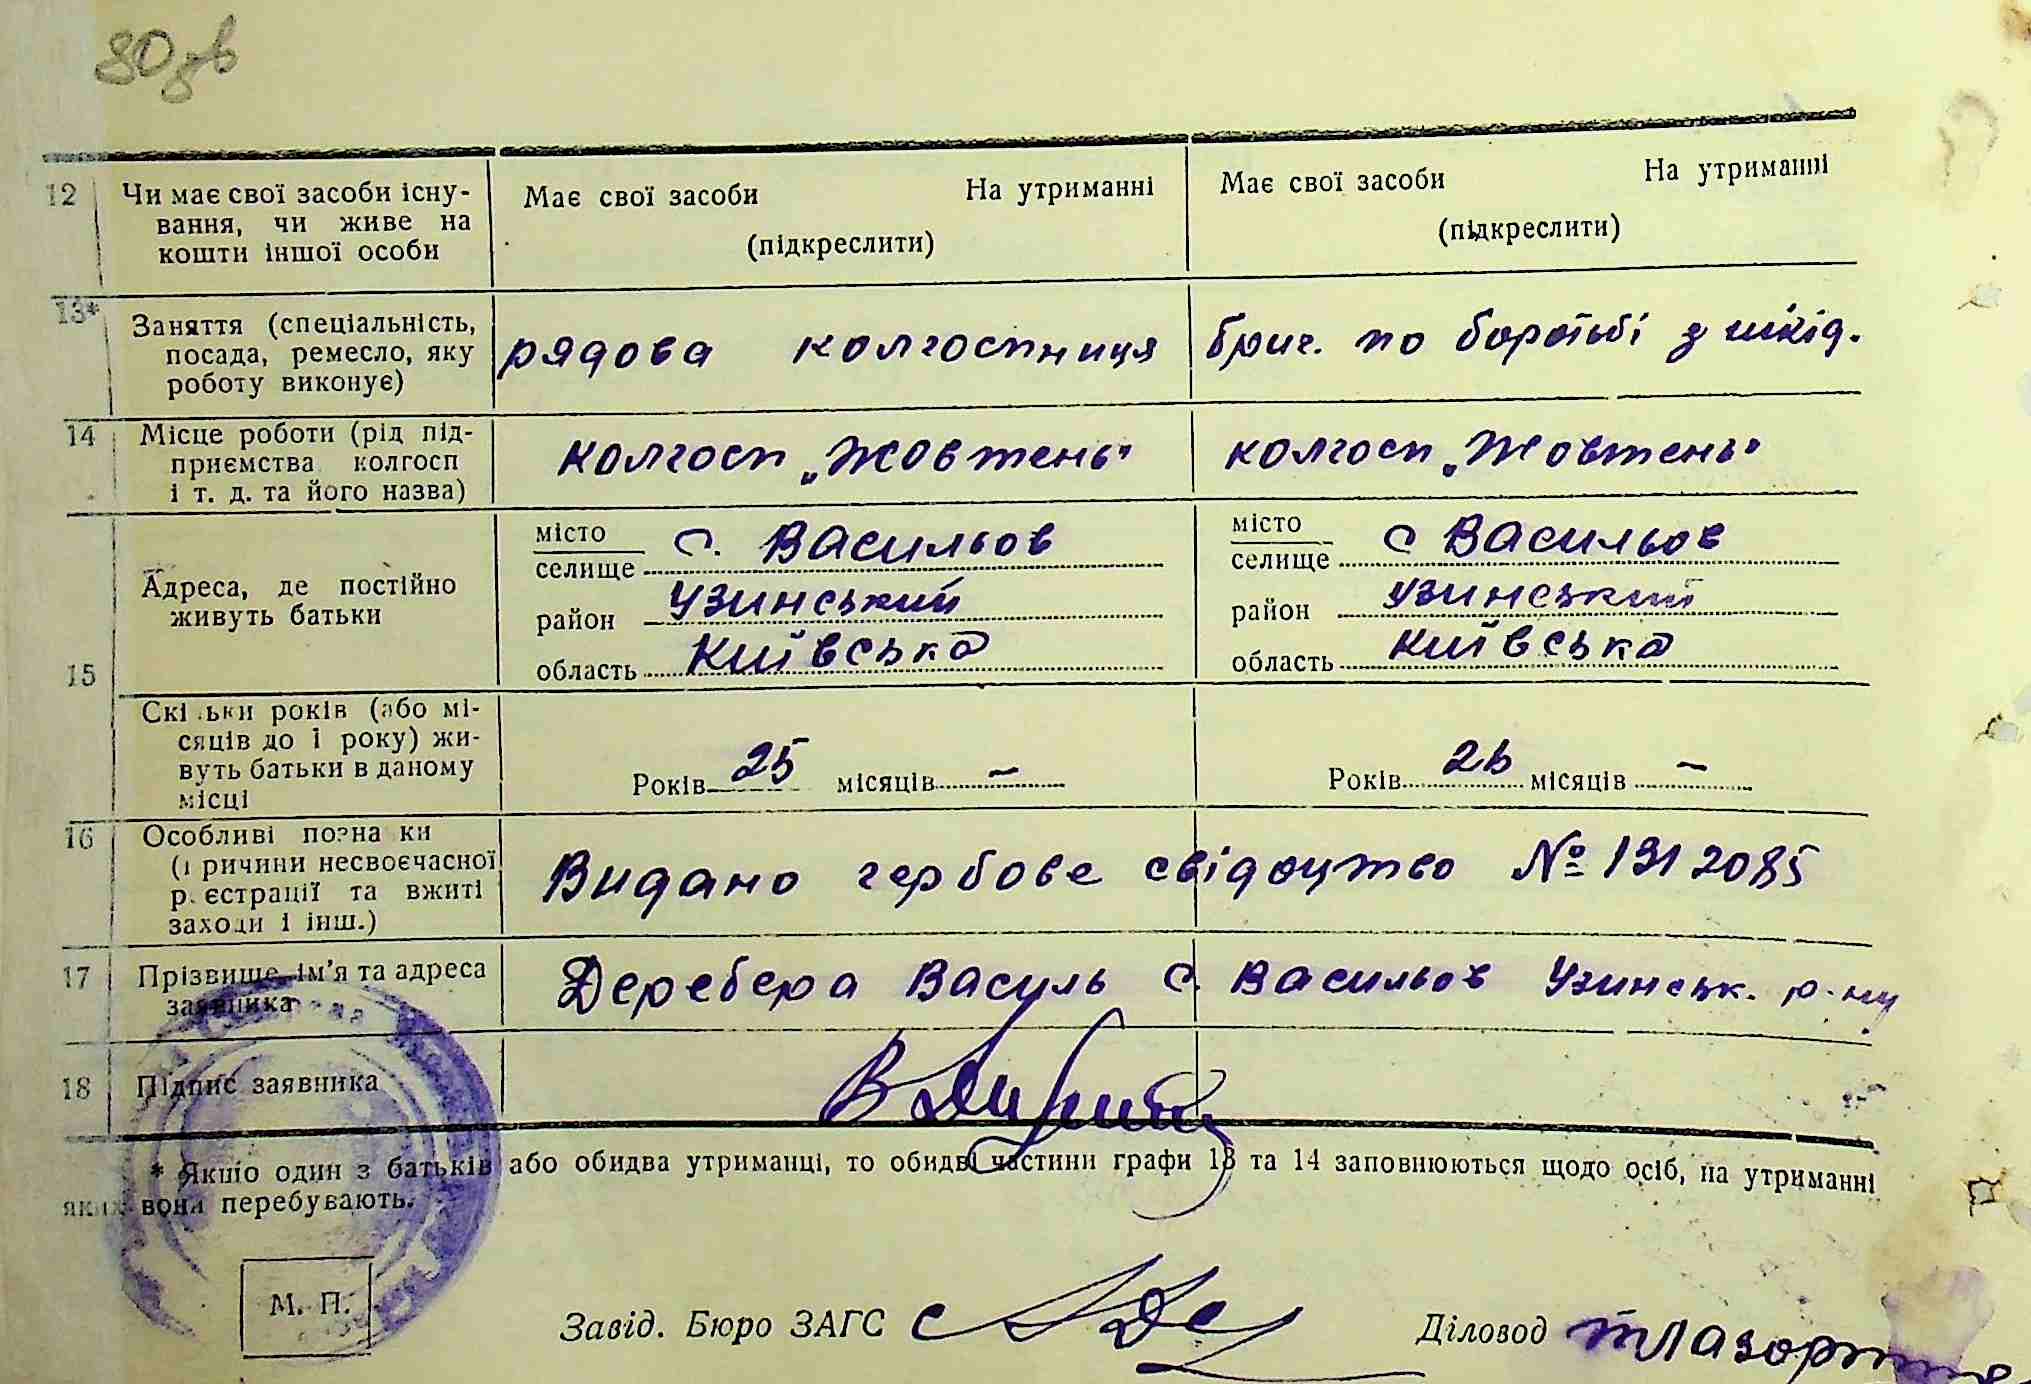 80 зв
12 Чи має свої засоби існу-
вання, чи живе на
кошти іншої особи
Має свої засоби На утриманні
(підкреслити)
Має свої засоби На утриманні
(підкреслити)
13* Заняття (спеціальність,
посада, ремесло, яку
роботу виконує)
рядова колгоспниця
бриг. по боротьбі з шкід.
14 Місце роботи (рід під-
приємства колгосп
і т. д. та його назва)
колгосп „Жовтень"
колгосп „Жовтень"
15 Адреса, де постійно
живуть батьки
місто
селище с. Васильов
район Узинський
область Київська
місто
селище с Васильов
район Узинський
область Київська
Скільки років (або мі-
сяців до 1 року) жи-
вуть батьки в даному
місці
Років 25 місяців –
Років місяців –
16 Особливі познаки
(причини несвоєчасної
реєстрації та вжиті
заходи і інш.)
Видано гербове свідоцтво № 1312085
17 Прізвище, ім'я та адреса
заявника
Деребера Василь с. Васильов Узинськ. р-ну
18 Підпис заявника
* Якщо один з батьків або обидва утриманці, то обидві частини графи 13 та 14 заповнюються щодо осіб, на утриманні
яких вони перебувають.
М. П.
Завід. Бюро ЗАГС
Діловод